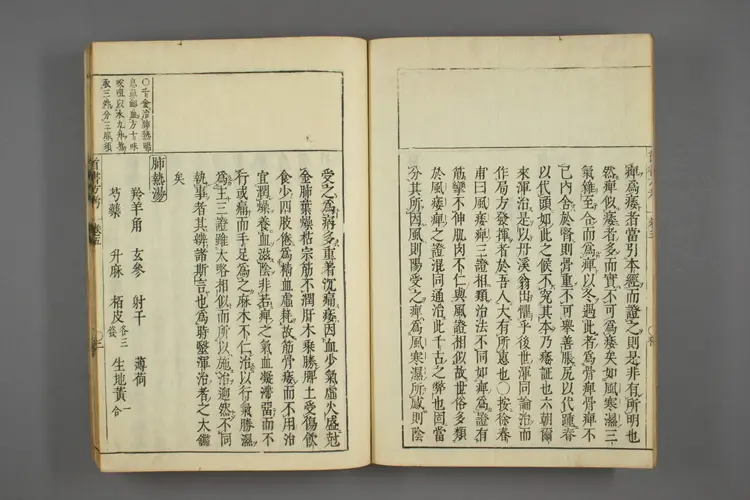 痺爲痿者當引本經而證之則是非有所明也
然痺似痿者多而實不可爲痿矣如風寒濕三
氣雜至合而爲痺以冬遇此者爲骨痺骨痺不
已內舍於腎則骨重不可擧善脹尻以代踵脊
以代頭如此之候不究其本乃痿証也六朝爾
來渾治是以丹溪翁出懼乎後世渾同論治而
作局方發揮者於吾人大有所惠也○按徐春
甫曰風痿痺三證相類治法不同如痺爲證有
筋攣不伸肌肉不仁與風證相似故世俗多類
於風痿痺之證混同通治此千古之弊也因當
分其所因風則陽受之痺爲風寒濕所感則陰
受之爲病多重著沉痛痿因血少氣虛火盛尅
金肺葉燥枯宗筋不潤肝木乘勝脾土受傷飲
食少四肢倦爲精血虛耗故筋骨痿而不用治
宜潤燥養血滋陰非若痺之氣血凝滯留而不
行或痛而手足爲之麻木不仁治以行氣勝濕
爲主三證雖大略相似而所以施治迥然不同
執事者其辨諸斯言也爲時醫渾治者之大鑑
矣
肺熱湯
羚羊角 玄參 射干 薄荷
芍藥 升麻 栢皮各三錢 生地黃一合